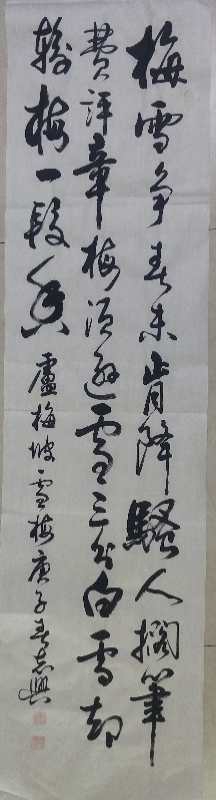 梅雪争春未肯降騷人擱筆
費評章梅須遜雪三分白雪却
輸梅一段香
盧梅坡雪梅庚子春志興